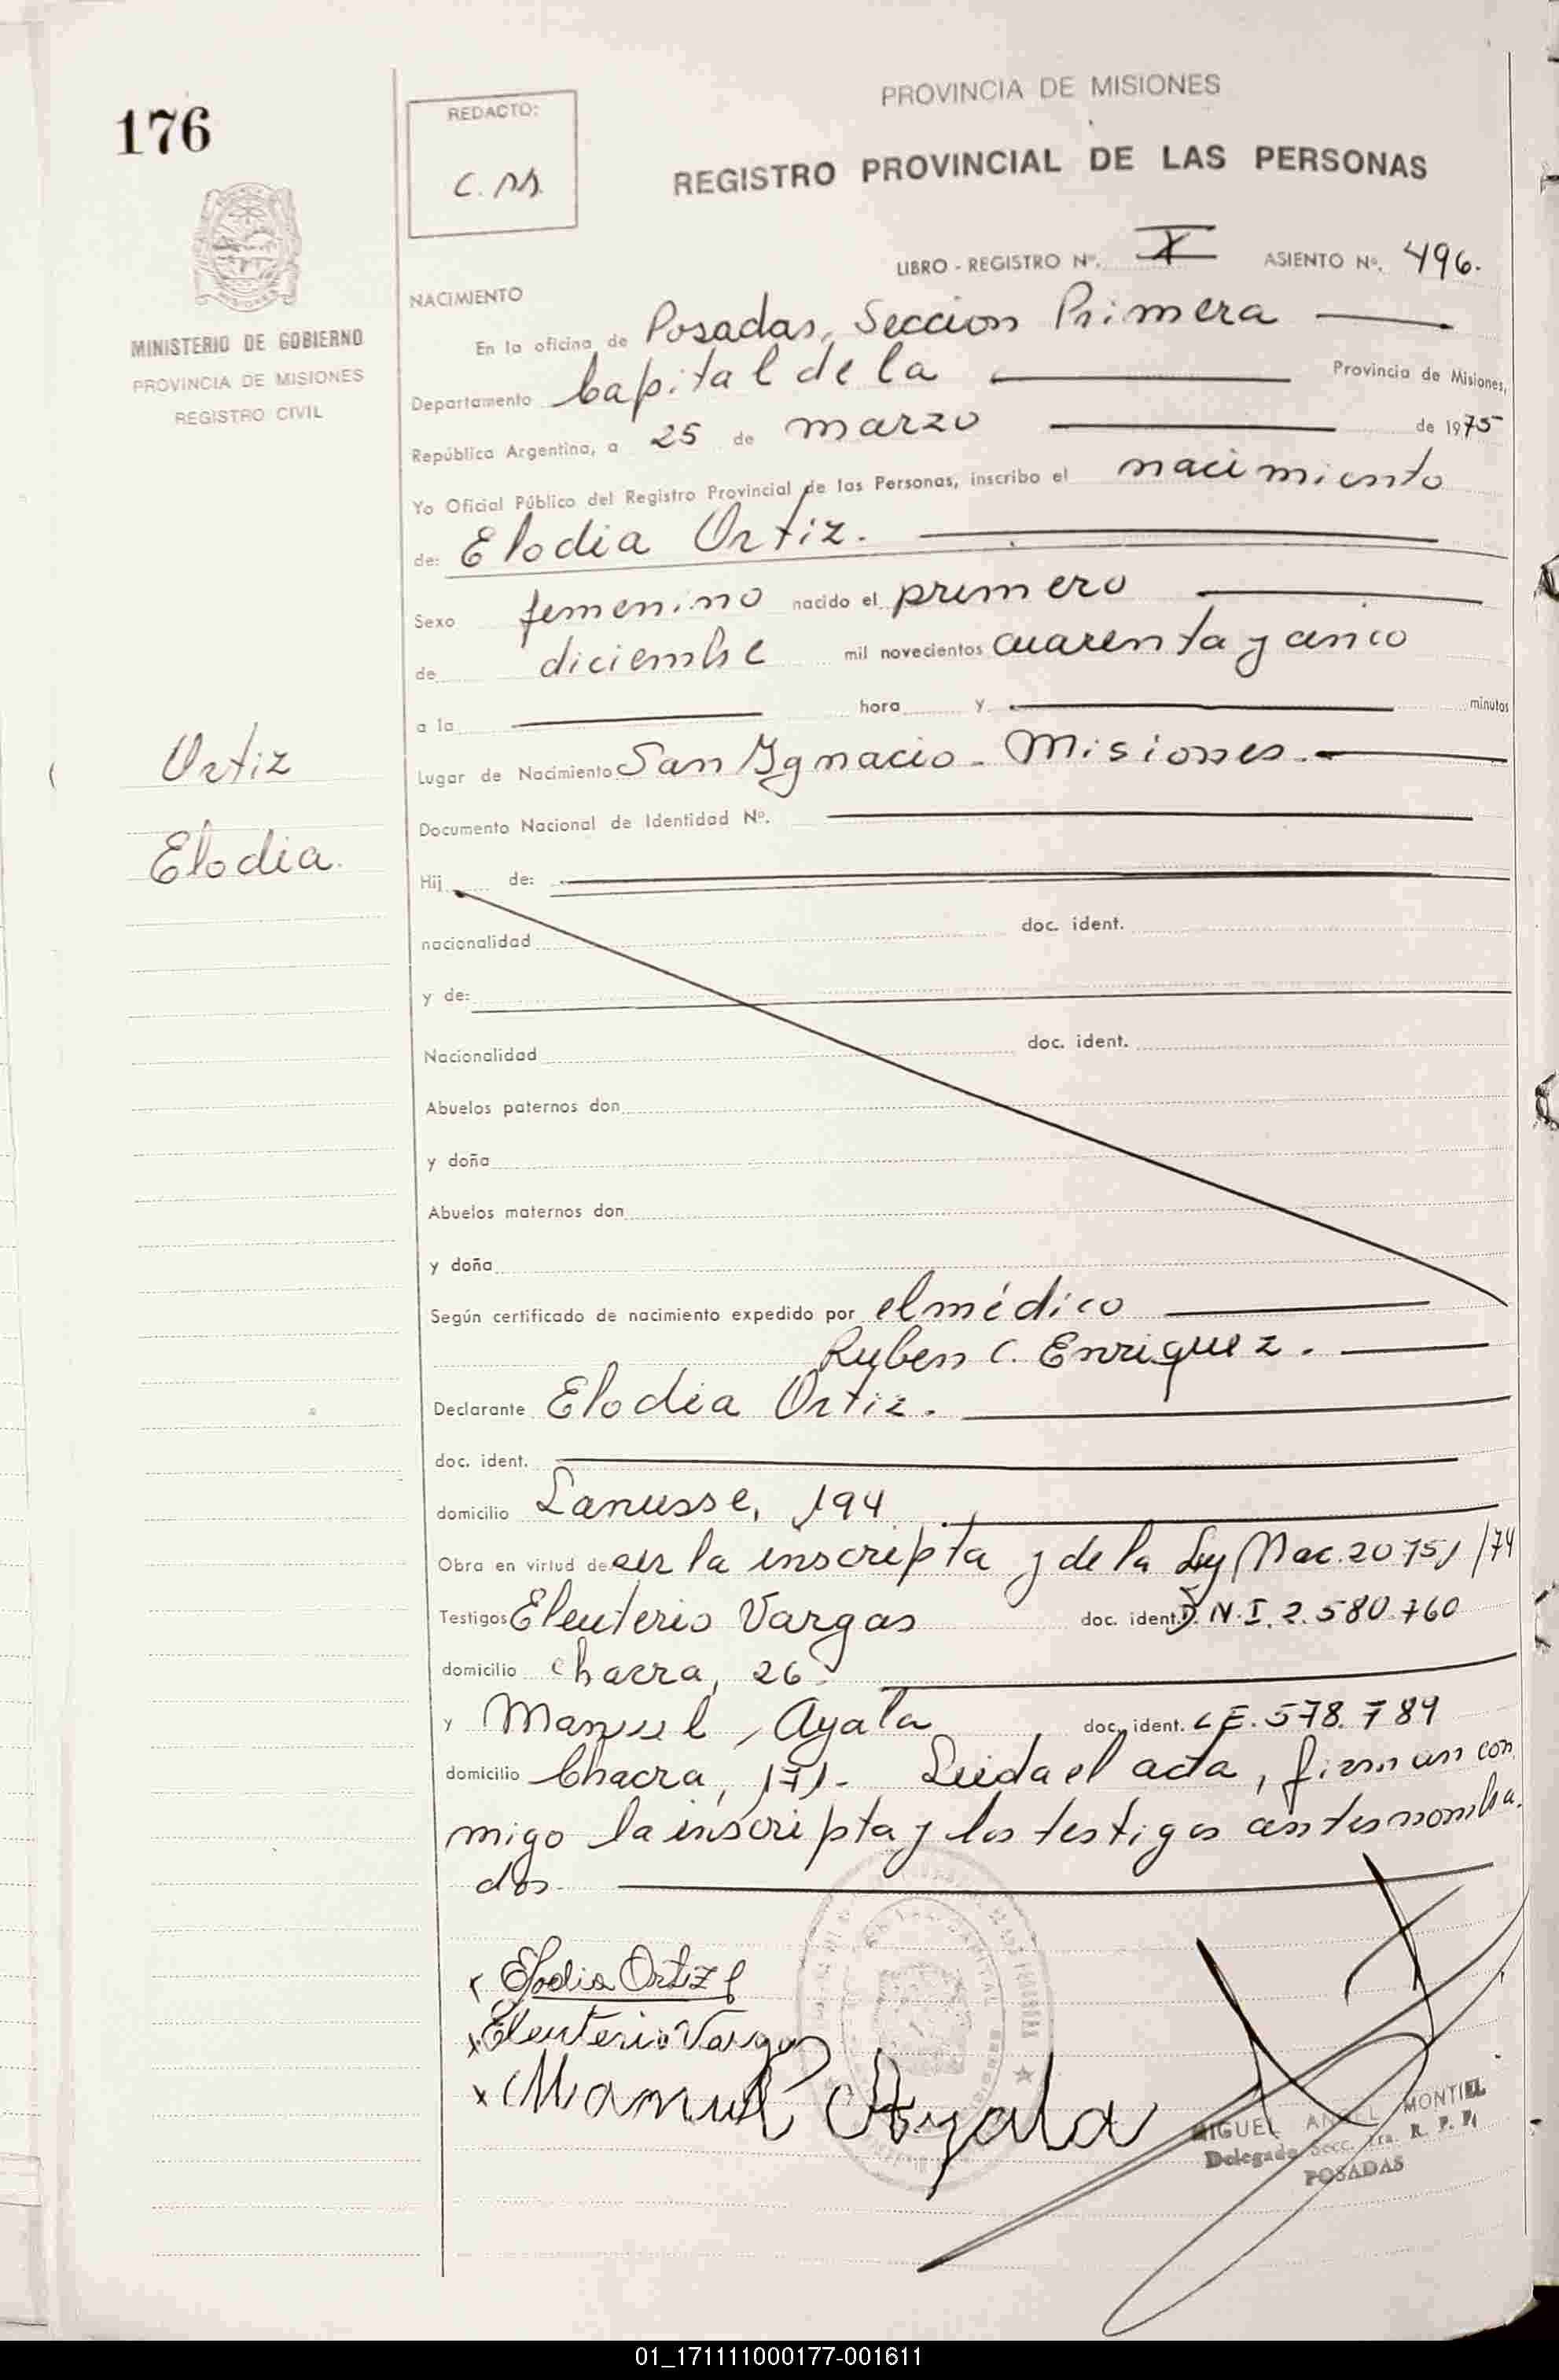 176
REDACTO:
C. M.
PROVINCIA DE MISIONES
REGISTRO PROVINCIAL DE LAS PERSONAS
LIBRO - REGISTRO Nº. X ASIENTO Nº. 496.
MINISTERIO DE GOBIERNO
PROVINCIA DE MISIONES
REGISTRO CIVIL
NACIMIENTO
En la oficina de Posadas, Seccion Primera
Departamento Capital de la Provincia de Misiones,
República Argentina, a 25 de marzo de 1975
Yo Oficial Público del Registro Provincial de las Personas, inscribo el nacimiento
de: Elodia Ortiz.
Sexo femenino nacido el primero
de diciembre mil novecientos cuarenta y cinco
a la hora y minutos
Ortiz
Elodia.
Lugar de Nacimiento San Ygnacio - Misiones.-
Documento Nacional de Identidad Nº.
Hij de:
nacionalidad doc. ident.
y de:
Nacionalidad doc. ident.
Abuelos paternos don
y doña
Abuelos maternos don
y doña
Según certificado de nacimiento expedido por el médico
Ruben C. Enriquez.
Declarante Elodia Ortiz.
doc. ident.
domicilio Lanusse, 194
Obra en virtud de ser la inscripta y de la Ley Nac. 20751/74
Testigos Eleuterio Vargas doc. ident. D.N.I. 2.580.760
domicilio Chacra, 26.
y Manuel Ayala doc. ident. L E. 578.789
domicilio Chacra, 171.- Leida el acta, firman con
migo la inscripta y los testigos antes nombra
dos.
x Elodia Ortiz
x Eleuterio Vargas
x Manuel Ayala
MIGUEL ANGEL MONTIEL
Delegado Secc. 1ra. R. P. P.
POSADAS
01_171111000177-001611